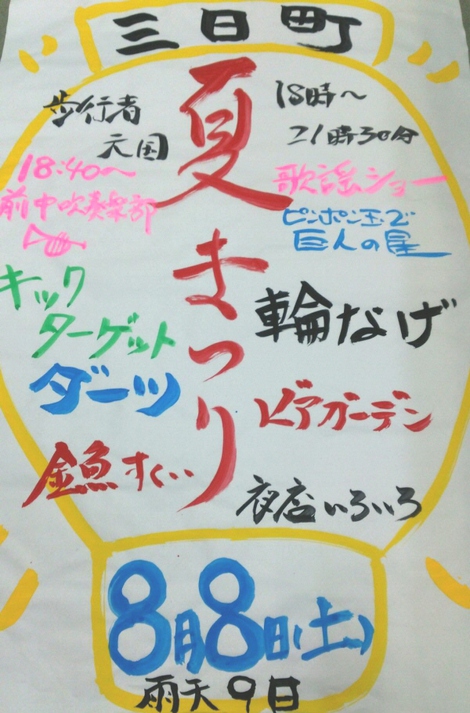 三日町
夏まつり
歩行者
天国
18時〜
21時30分
18:40〜
前中吹奏楽部
歌謡ショー
ピンポン玉で
巨人の星
キック
ターゲット
輪なげ
ダーツ
ビアガーデン
金魚すくい
夜店いろいろ
8月8日(土)
雨天9日